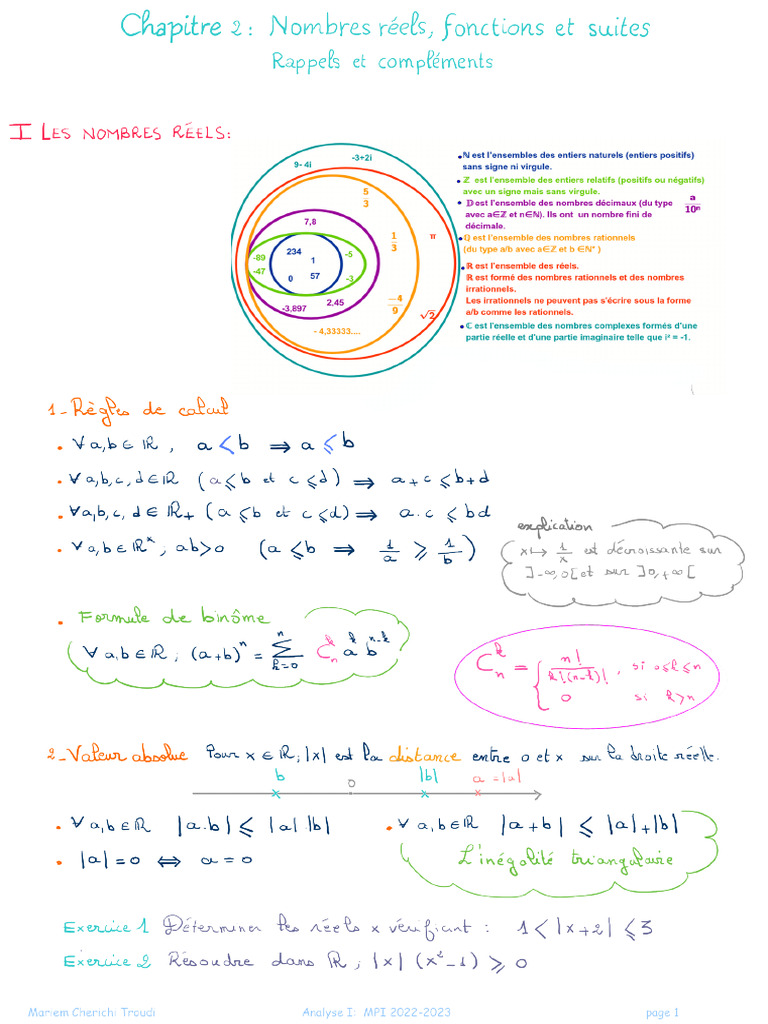 Chapitre 2 : Nombres réels, fonctions et suites
Rappels et compléments
I LES NOMBRES RÉELS :
9- 4i
-3+2i
5/3
7,8
1/3
π
234
1
-5
-89
-47
0
57
-3
-4/9
2,45
-3,897
√2
- 4,33333....
• ℕ est l'ensembles des entiers naturels (entiers positifs)
sans signe ni virgule.
• ℤ est l'ensemble des entiers relatifs (positifs ou négatifs)
avec un signe mais sans virgule.
• 𝔻 est l'ensemble des nombres décimaux (du type a/10ⁿ
avec a∈ℤ et n∈ℕ). Ils ont un nombre fini de
décimale.
• ℚ est l'ensemble des nombres rationnels
(du type a/b avec a∈ℤ et b ∈ℕ* )
• ℝ est l'ensemble des réels.
ℝ est formé des nombres rationnels et des nombres
irrationnels.
Les irrationnels ne peuvent pas s'écrire sous la forme
a/b comme les rationnels.
• ℂ est l'ensemble des nombres complexes formés d'une
partie réelle et d'une partie imaginaire telle que i² = -1.
1- Règles de calcul
• ∀ a,b ∈ ℝ , a < b ⇒ a ⩽ b
• ∀ a,b,c,d ∈ ℝ (a ⩽ b et c ⩽ d) ⇒ a+c ⩽ b+d
• ∀ a,b,c,d ∈ ℝ+ (a ⩽ b et c ⩽ d) ⇒ a.c ⩽ bd
• ∀ a,b ∈ ℝ*, ab>0 (a ⩽ b ⇒ 1/a ⩾ 1/b)
explication
x ↦ 1/x est décroissante sur
]-∞,0[ et sur ]0,+∞[
• Formule de binôme
∀ a,b ∈ ℝ ; (a+b)ⁿ = ∑_{k=0}^{n} C_n^k a^k b^{n-k}
C_n^k = { n!/(k!(n-k)!) , si 0⩽k⩽n
0 si k>n
2- Valeur absolue Pour x ∈ ℝ ; |x| est la distance entre 0 et x sur la droite réelle.
b 0 |b| a = |a|
• ∀ a,b ∈ ℝ |a.b| ⩽ |a|.|b| • ∀ a,b ∈ ℝ |a+b| ⩽ |a|+|b|
• |a| = 0 ⇔ a = 0
L'inégalité triangulaire
Exercice 1 Déterminer les réels x vérifiant : 1 < |x+2| ⩽ 3
Exercice 2 Résoudre dans ℝ, |x| (x²-1) ⩾ 0
Mariem Cherichi Troudi Analyse I: MPI 2022-2023 page 1